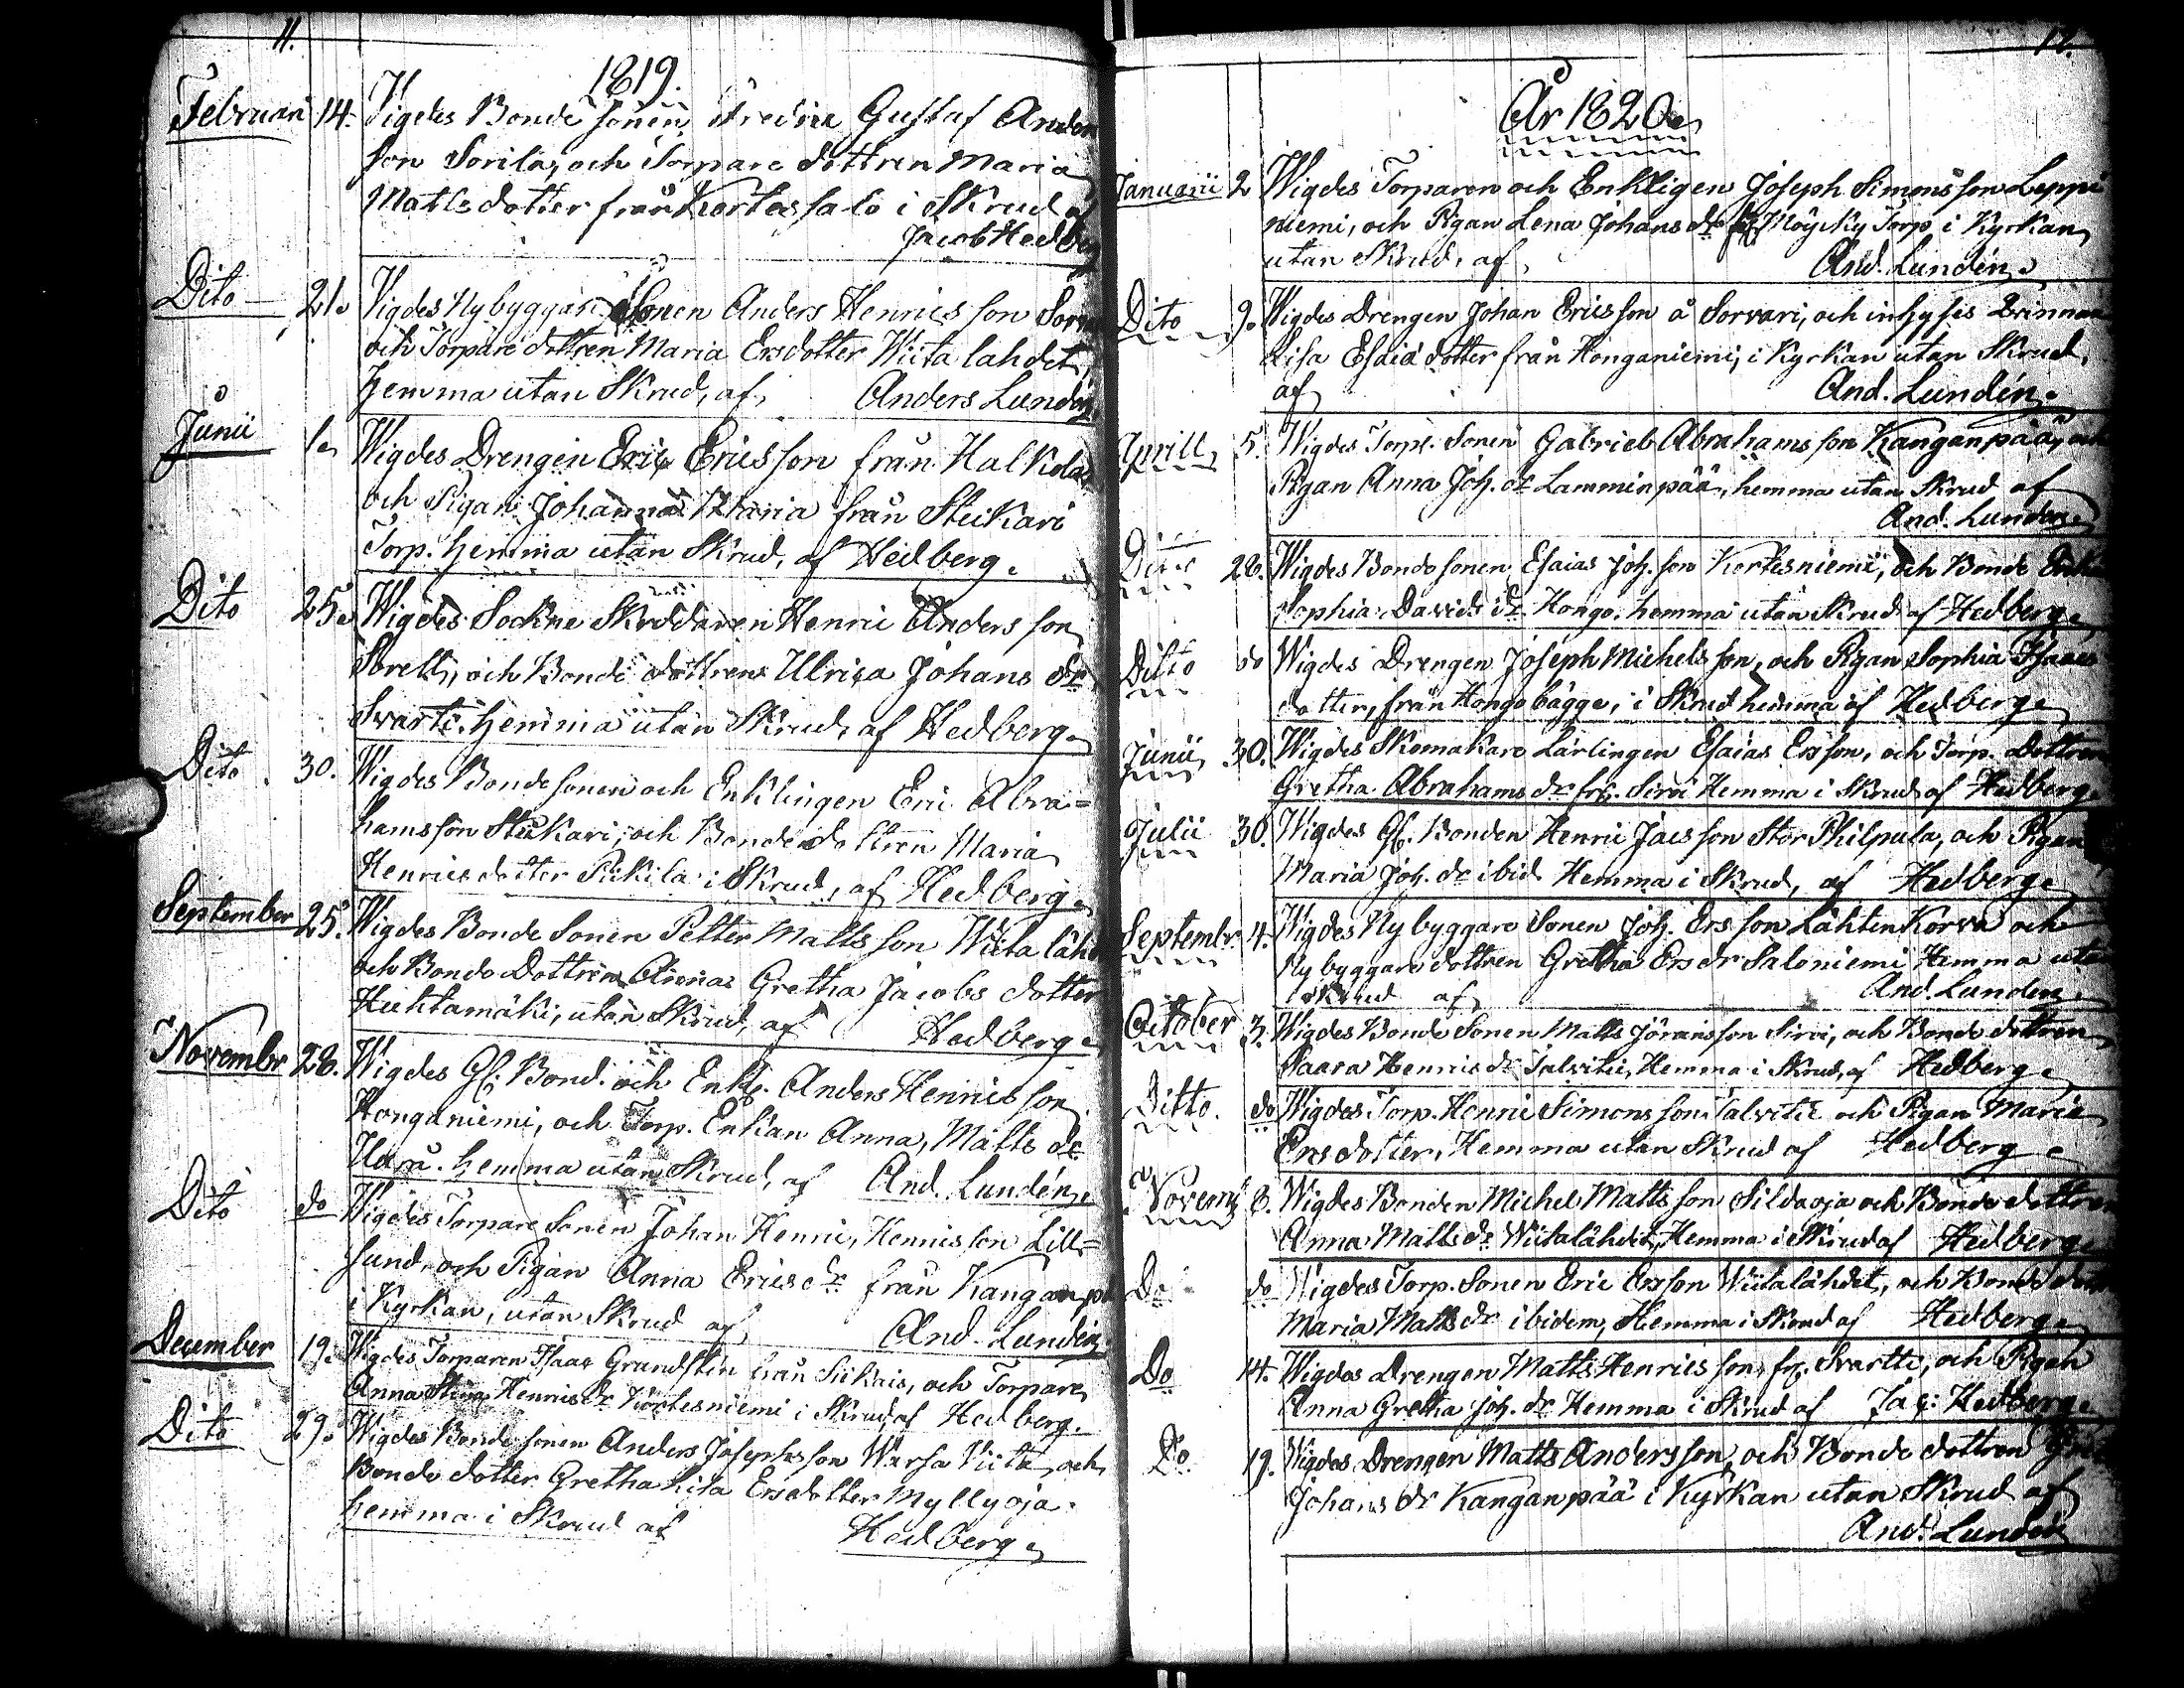 11.
1819.
Februari 14. Vigdes Bonde Sonen Fredric Gustaf Anders
son Sorila, och Torpare dottren Maria
Matts dotter från Kortessalo i Skrud af
Jacob Hedberg
Dito 21. Vigdes Nybyggare Sonen Anders Henrics son
och Torpare dottren Maria Ersdotter Wiitalahdet,
hemma utan Skrud, af Anders Lundén
Junii 1. Wigdes Drengen Eric Ericsson från Halkola
och Pigan Johanna Maria från Stickari
Torp. hemma utan Skrud, af Hedberg.
Dito 25. Wigdes Sockne Skreddaren Henric Andersson
och Bonde dottren Ulrica Johans dr
Svartti. hemma utan Skrud, af Hedberg.
Dito 30. Wigdes Bondesonen och Enklingen Eric Abra=
hamsson Stickari, och Bonde dottren Maria
Henrics dotter Pickila i Skrud, af Hedberg.
September 25. Wigdes Bonde Sonen Petter Mattsson Wiitalähd
och Bonde Dottren Anna Gretha Jacobs dotter
Huhtamäki, utan Skrud, af Hedberg.
Novembr 28. Wigdes Gl. Bond. och Enkl. Anders Henricsson
Honganiemi, och Torp. Enkan Anna, Matts dr
hemma utan Skrud, af And. Lundén.
Dito do Wigdes Torpare Sonen Johan Henric, Henricsson Lill=
sund, och Pigan Anna Erics dr från Kanganp
i Kyrkan, utan Skrud af And. Lundén.
December 19. Wigdes Torparen Isaac Grundsten från och Torpare
Anna Stina Henrics dr Kortesniemi i Skrud, af Hedberg.
Dito 29. Wigdes Bonde sonen Anders Josephsson Warsa Viita, och
Bonde dotter Gretha Lisa Ersdotter Myllyoja.
hemma i Skrud af Hedberg.
12.
År 1820.
Januarii 2 Wigdes Torparen och Enkligen Joseph Simonsson Leppi
niemi, och Pigan Lena Johans dr fr. Möycky Torp, i Kyrkan
utan Skrud, af And. Lundén.
Dito 9. Wigdes Drengen Johan Ericsson å Sorvari, och inhyses Qvinnan
Lisa Esaiædotter från Honganiemi, i Kyrkan utan Skrud,
af And. Lundén.
Aprill 5. Wigdes Torp. Sonen Gabriel Abrahamsson Kanganpää, och
Pigan Anna Joh. dr Lamminpää, hemma utan Skrud af
And. Lundén
Dito 28. Wigdes Bondesonen Esaias Joh. son Kortesniemi, och Bonde Enkan
Sophia Davids dr Hongo. hemma utan Skrud af Hedberg.
Ditto do Wigdes Drengen Joseph Michelsson, och Pigan Sophia Isaacs
dotter, från Hongo bägge, i Skrud hemma af Hedberg.
Junii 30. Wigdes Skomakare Lärlingen Esaias Ersson, och Torp. Dottren
Gretha Abrahams dr fr. Sirvi Hemma i Skrud af Hedberg.
Julii 30. Wigdes Gl. Bonden Henric Jacsson Stor Philpula, och Pigan
Maria Joh. dr ibid. Hemma i Skrud, af Hedberg.
Septembr 4. Wigdes Nybyggare Sonen Joh. Ersson Lähten Korva och
Nybyggare dottren Gretha Ers dr Saloniemi Hemma utan
Skrud af And. Lundén.
October 3. Wigdes Bonde Sonen Matts Jöransson Sirvi, och Bonde dottren
Kaara Henrics dr Talvitie, Hemma i Skrud, af Hedberg.
Ditto. do Wigdes Torp. Henric Simonsson Talvitie och Pigan Maria
Ersdotter, Hemma utan Skrud af Hedberg.
Novemb 8. Wigdes Bonden Michel Mattsson Sildaoja och Bonde dottren
Anna Matts dr Wiitalähdet, Hemma i Skrud af Hedberg.
Do do Wigdes Torp. Sonen Eric Ersson Wiitalähdet, och Bonde dott
Maria Matts dr ibidem, Hemma i Skrud af Hedberg.
Do 14. Wigdes Drengen Matts Henricsson, fr. Svartti, och Pigan
Anna Gretha Joh. dr Hemma i Skrud af Jac: Hedberg.
Do 19. Wigdes Drengen Matts Andersson, och Bonde dottren
Johans dr Kanganpää i Kyrkan utan Skrud af
And. Lundén